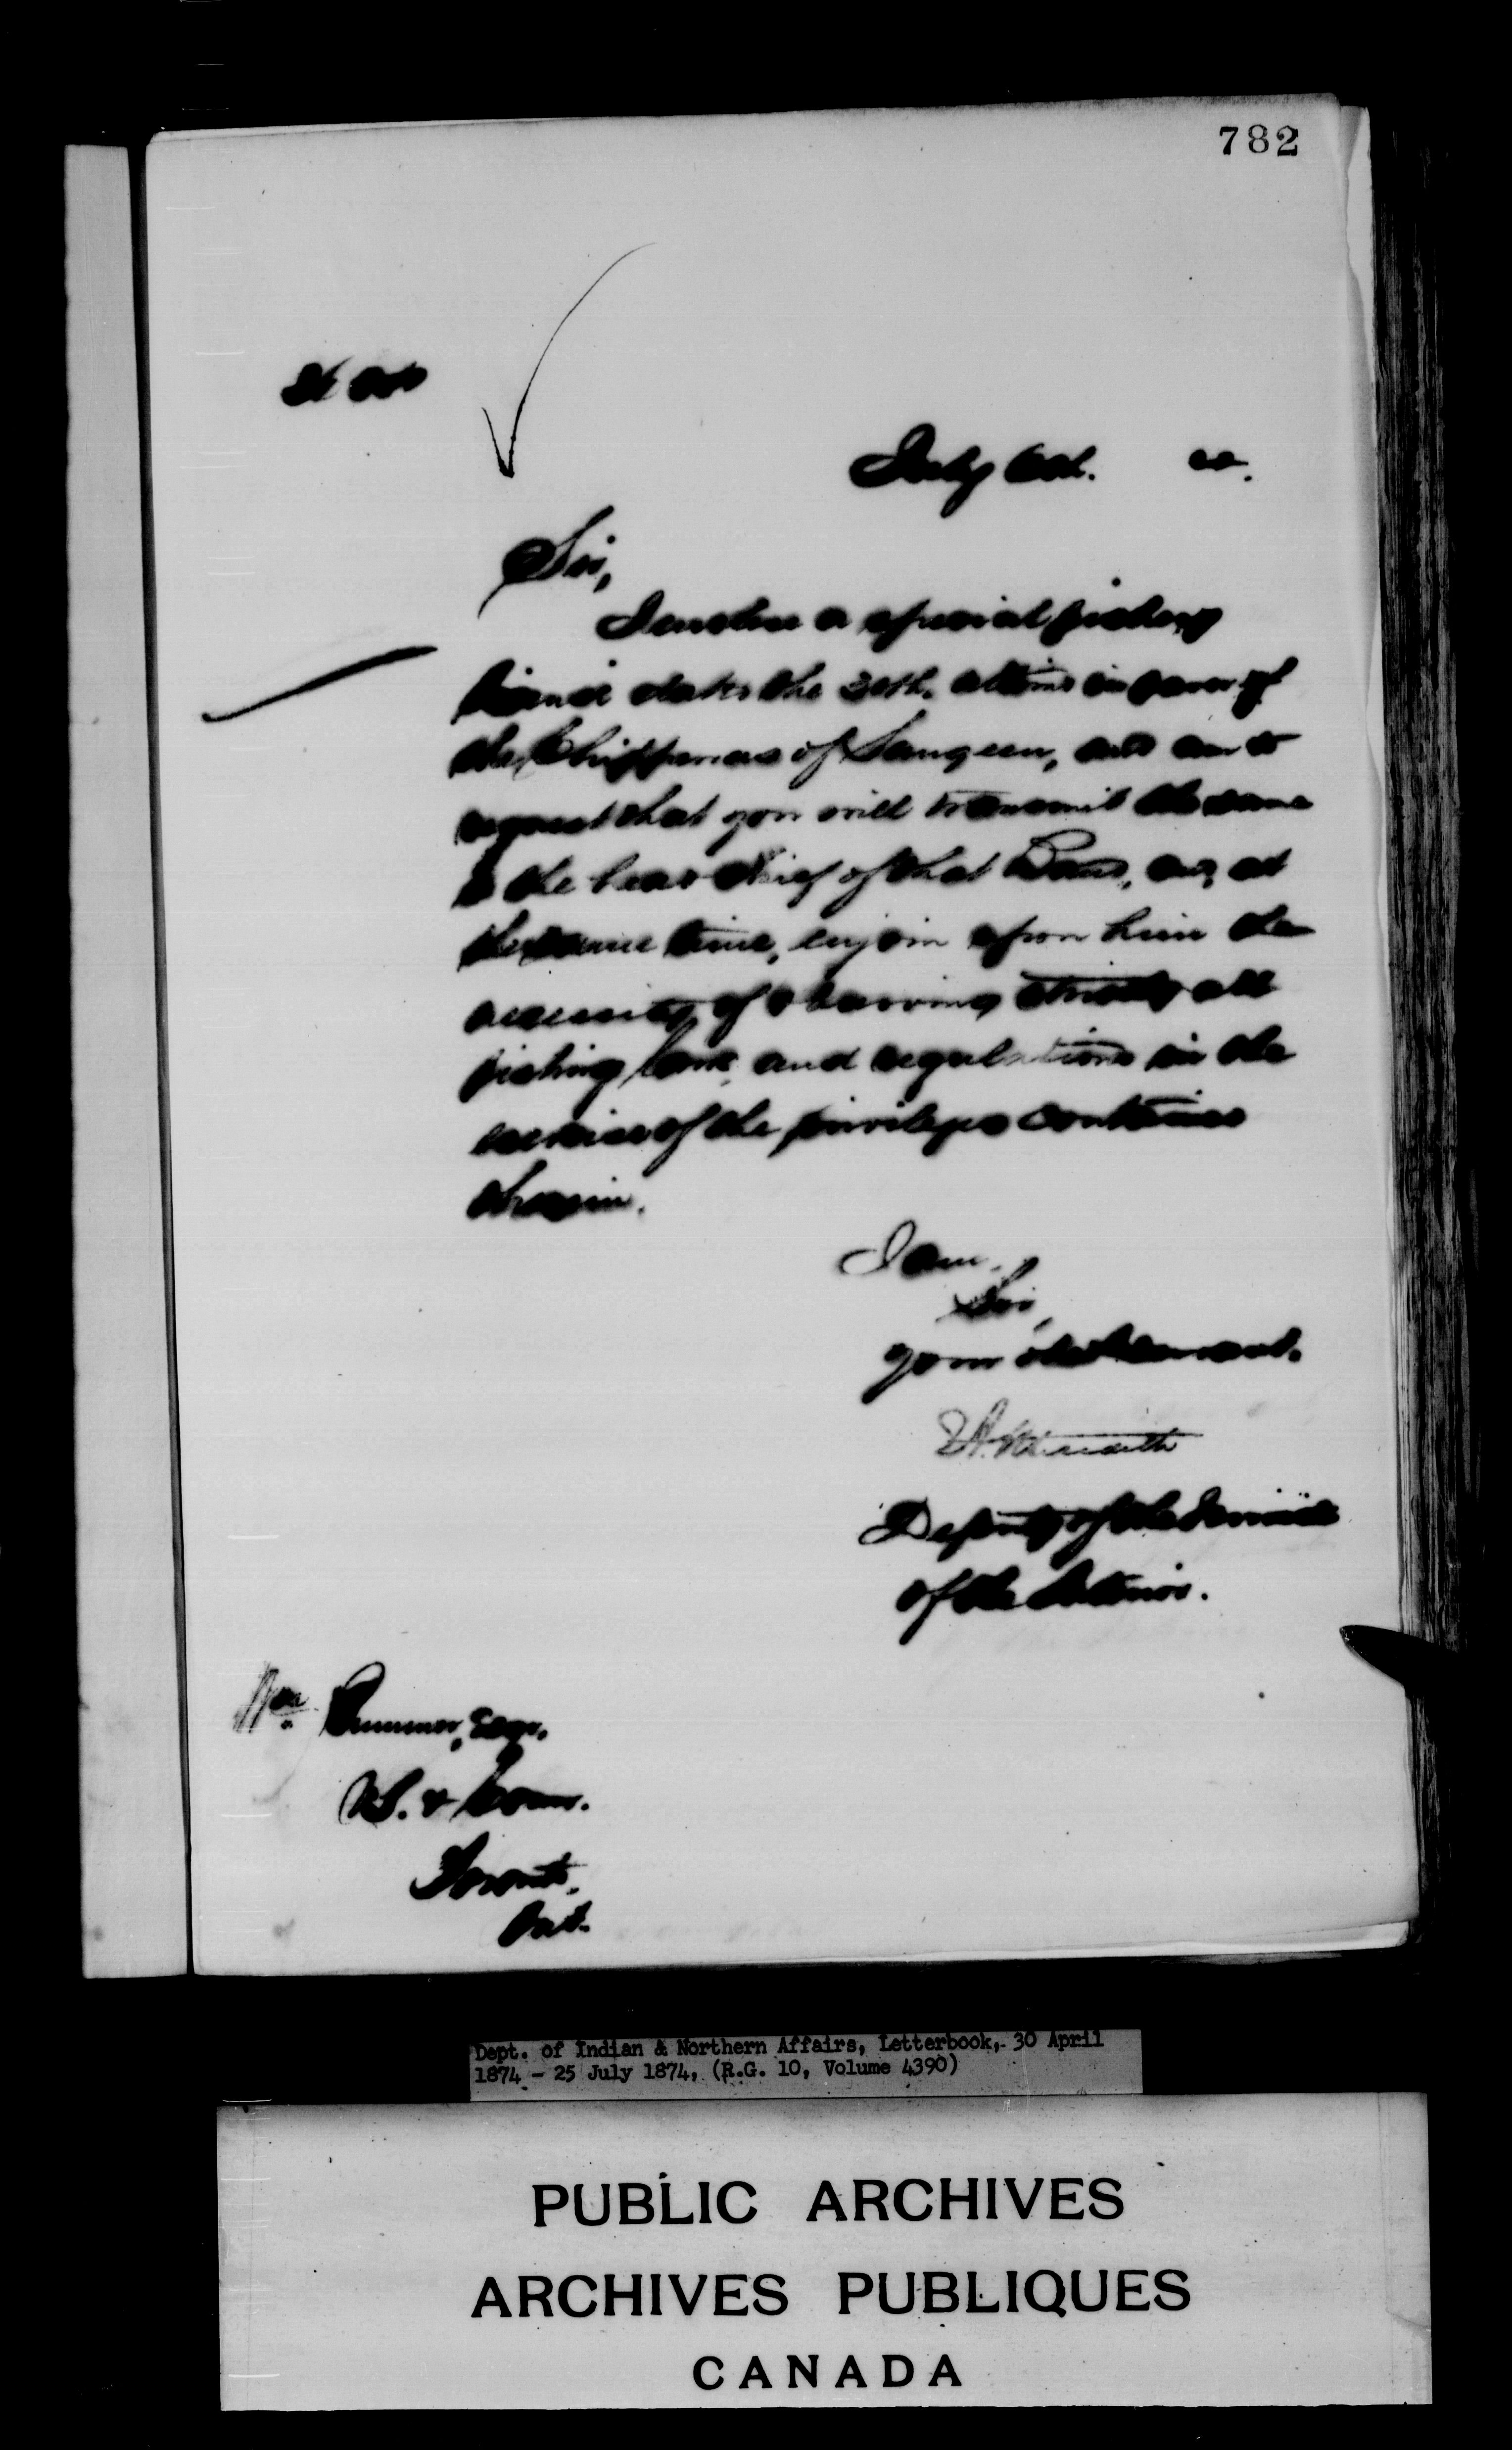 782
July 6th.
Sir,
I enclose a special fishery
license dated the 20th. ultimo in favor of
the Chippewas of Saugeen, and am to
request that you will transmit the same
to the head Chief of that Band, and, at
the same time, enjoin upon him the
necessity of observing strictly all
fishing laws and regulations in the
exercise of the privileges contained
therein.
I am,
Sir,
your obedt servant.
Meredith
Deputy of the Minister
of the Interior.
Wm Plummer, Esqr.
Comr.
Toronto,
Ont.
Dept. of Indian & Northern Affairs, Letterbook, 30 April
1874 - 25 July 1874, (R.G. 10, Volume 4390)
PUBLIC ARCHIVES
ARCHIVES PUBLIQUES
CANADA